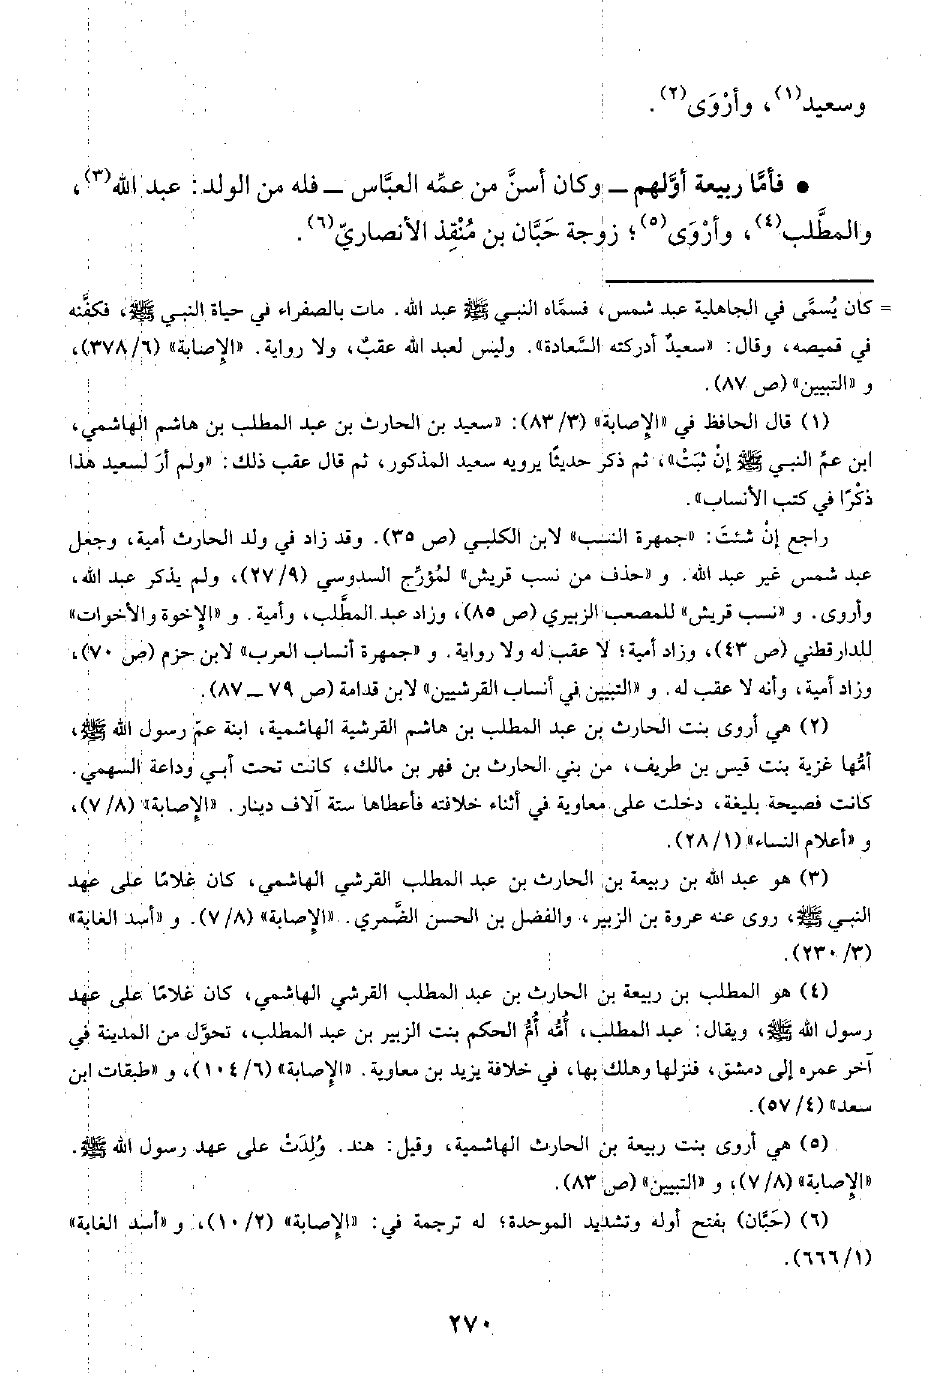 وسعيد(١)، وأرْوَى(٢).
● فأمَّا ربيعة أوَّلهم ــ وكان أسنَّ من عمِّه العبَّاس ــ فله من الولد: عبد الله(٣)،
والمطَّلب(٤)، وأرْوَى(٥)؛ زوجة حَبَّان بن مُنْقِذ الأنصاريّ(٦).
= كان يُسمَّى في الجاهلية عبد شمس، فسمَّاه النبـي ﷺ عبد الله. مات بالصفراء في حياة النبـي ﷺ، فكفَّنه
في قميصه، وقال: «سعيدٌ أدركته السَّعادة». وليس لعبد الله عقبٌ، ولا رواية. «الإصابة» (٣٧٨/٦)،
و «التبيين» (ص ٨٧).
(١) قال الحافظ في «الإصابة» (٨٣/٣): «سعيد بن الحارث بن عبد المطلب بن هاشم الهاشمي،
ابن عمِّ النبـي ﷺ إنْ ثبَتْ»، ثم ذكر حديثًا يرويه سعيد المذكور، ثم قال عقب ذلك: «ولم أرَ لسعيد هذا
ذكْرًا في كتب الأنساب».
راجع إنْ شئتَ: «جمهرة النسب» لابن الكلبي (ص ٣٥). وقد زاد في ولد الحارث أمية، وجعل
عبد شمس غير عبد الله. و «حذف من نسب قريش» لمُؤرِّج السدوسي (٢٧/٩)، ولم يذكر عبد الله،
وأروى. و «نسب قريش» للمصعب الزبيري (ص ٨٥)، وزاد عبد المطَّلب، وأمية. و «الإخوة والأخوات»
للدارقطني (ص ٤٣)، وزاد أمية؛ لا عقب له ولا رواية. و «جمهرة أنساب العرب» لابن حزم (ص ٧٠)،
وزاد أمية، وأنه لا عقب له. و «التبيين في أنساب القرشيين» لابن قدامة (ص ٧٩ ــ ٨٧).
(٢) هي أروى بنت الحارث بن عبد المطلب بن هاشم القرشية الهاشمية، ابنة عمّ رسول الله ﷺ،
أمُّها غزية بنت قيس بن طريف، من بني الحارث بن فهر بن مالك، كانت تحت أبـي وداعة السهمي.
كانت فصيحة بليغة، دخلت على معاوية في أثناء خلافته فأعطاها ستة آلاف دينار. «الإصابة» (٧/٨)،
و «أعلام النساء» (٢٨/١).
(٣) هو عبد الله بن ربيعة بن الحارث بن عبد المطلب القرشي الهاشمي، كان غلامًا على عهد
النبـي ﷺ، روى عنه عروة بن الزبير، والفضل بن الحسن الضَّمري. «الإصابة» (٧/٨). و «أسد الغابة»
(٢٣٠/٣).
(٤) هو المطلب بن ربيعة بن الحارث بن عبد المطلب القرشي الهاشمي، كان غلامًا على عهد
رسول الله ﷺ، ويقال: عبد المطلب، أُمُّه أُمُّ الحكم بنت الزبير بن عبد المطلب، تحوَّل من المدينة في
آخر عمره إلى دمشق، فنزلها وهلك بها، في خلافة يزيد بن معاوية. «الإصابة» (١٠٤/٦)، و «طبقات ابن
سعد» (٥٧/٤).
(٥) هي أروى بنت ربيعة بن الحارث الهاشمية، وقيل: هند. وُلِدَتْ على عهد رسول الله ﷺ.
«الإصابة» (٧/٨)، و «التبيين» (ص ٨٣).
(٦) (حَبَّان) بفتح أوله وتشديد الموحدة؛ له ترجمة في: «الإصابة» (١٠/٢)، و «أسد الغابة»
(٦٦٦/١).
٢٧٠